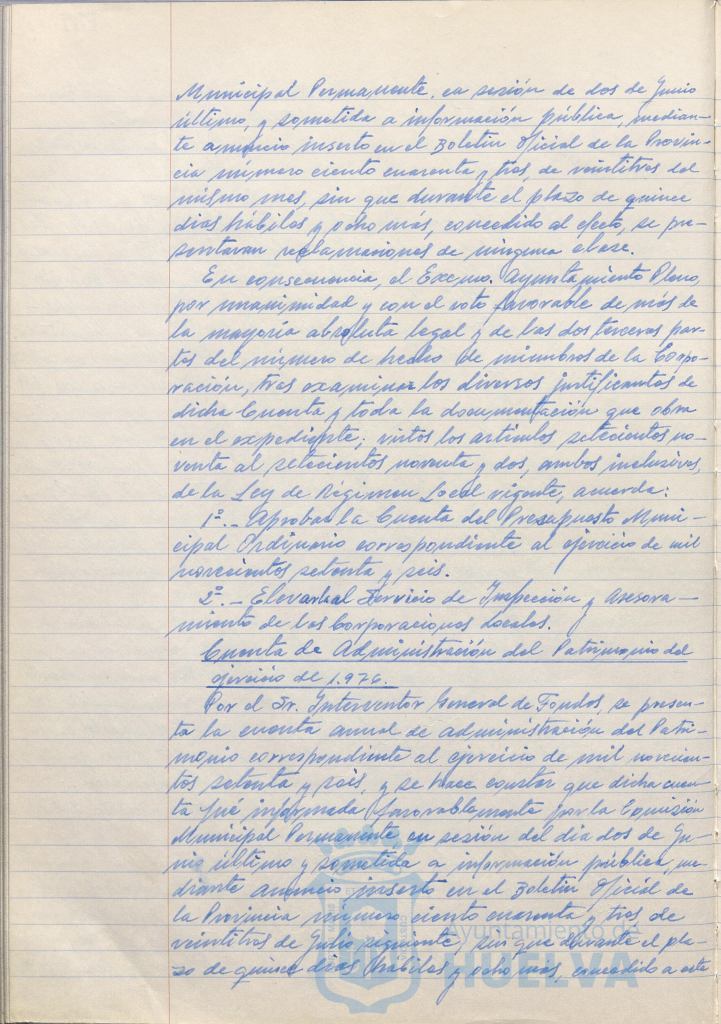 Municipal Permanente, en sesión de dos de Junio
último, y sometida a información pública, median-
te anuncio inserto en el Boletín Oficial de la Provin-
cia número ciento cuarenta y tres, de veintitres del
mismo mes, sin que durante el plazo de quince
dias hábiles y ocho más, concedido al efecto, se pre-
sentaran reclamaciones de ninguna clase.
En consecuencia, el Excmo. Ayuntamiento Pleno,
por unanimidad y con el voto favorable de más de
la mayoría absoluta legal y de las dos terceras par-
tes del número de hecho de miembros de la Corpo-
ración, tras examinar los diversos justificantes de
dicha Cuenta y toda la documentación que obra
en el expediente; vistos los artículos setecientos no-
venta al setecientos noventa y dos, ambos inclusives,
de la Ley de Régimen Local vigente, acuerda:
1º.- Aprobar la Cuenta del Presupuesto Muni-
cipal Ordinario correspondiente al ejercicio de mil
novecientos setenta y seis.
2º.- Elevarla al Servicio de Inspección y Asesora-
miento de las Corporaciones Locales.
Cuenta de Administración del Patrimonio del
ejercicio de 1.976.
Por el Sr. Interventor General de Fondos, se presen-
ta la cuenta anual de administración del Patri-
monio correspondiente al ejercicio de mil novecien-
tos setenta y seis, y se hace constar que dicha cuen-
ta fué informada favorablemente por la Comisión
Municipal Permanente en sesión del dia dos de Ju-
nio último y sometida a información pública, me-
diante anuncio inserto en el Boletín Oficial de
la Provincia número ciento cuarenta y tres de
veintitres de Julio siguiente, sin que durante el pla-
zo de quince dias hábiles y ocho más, concedido a este
Ayuntamiento de
HUELVA